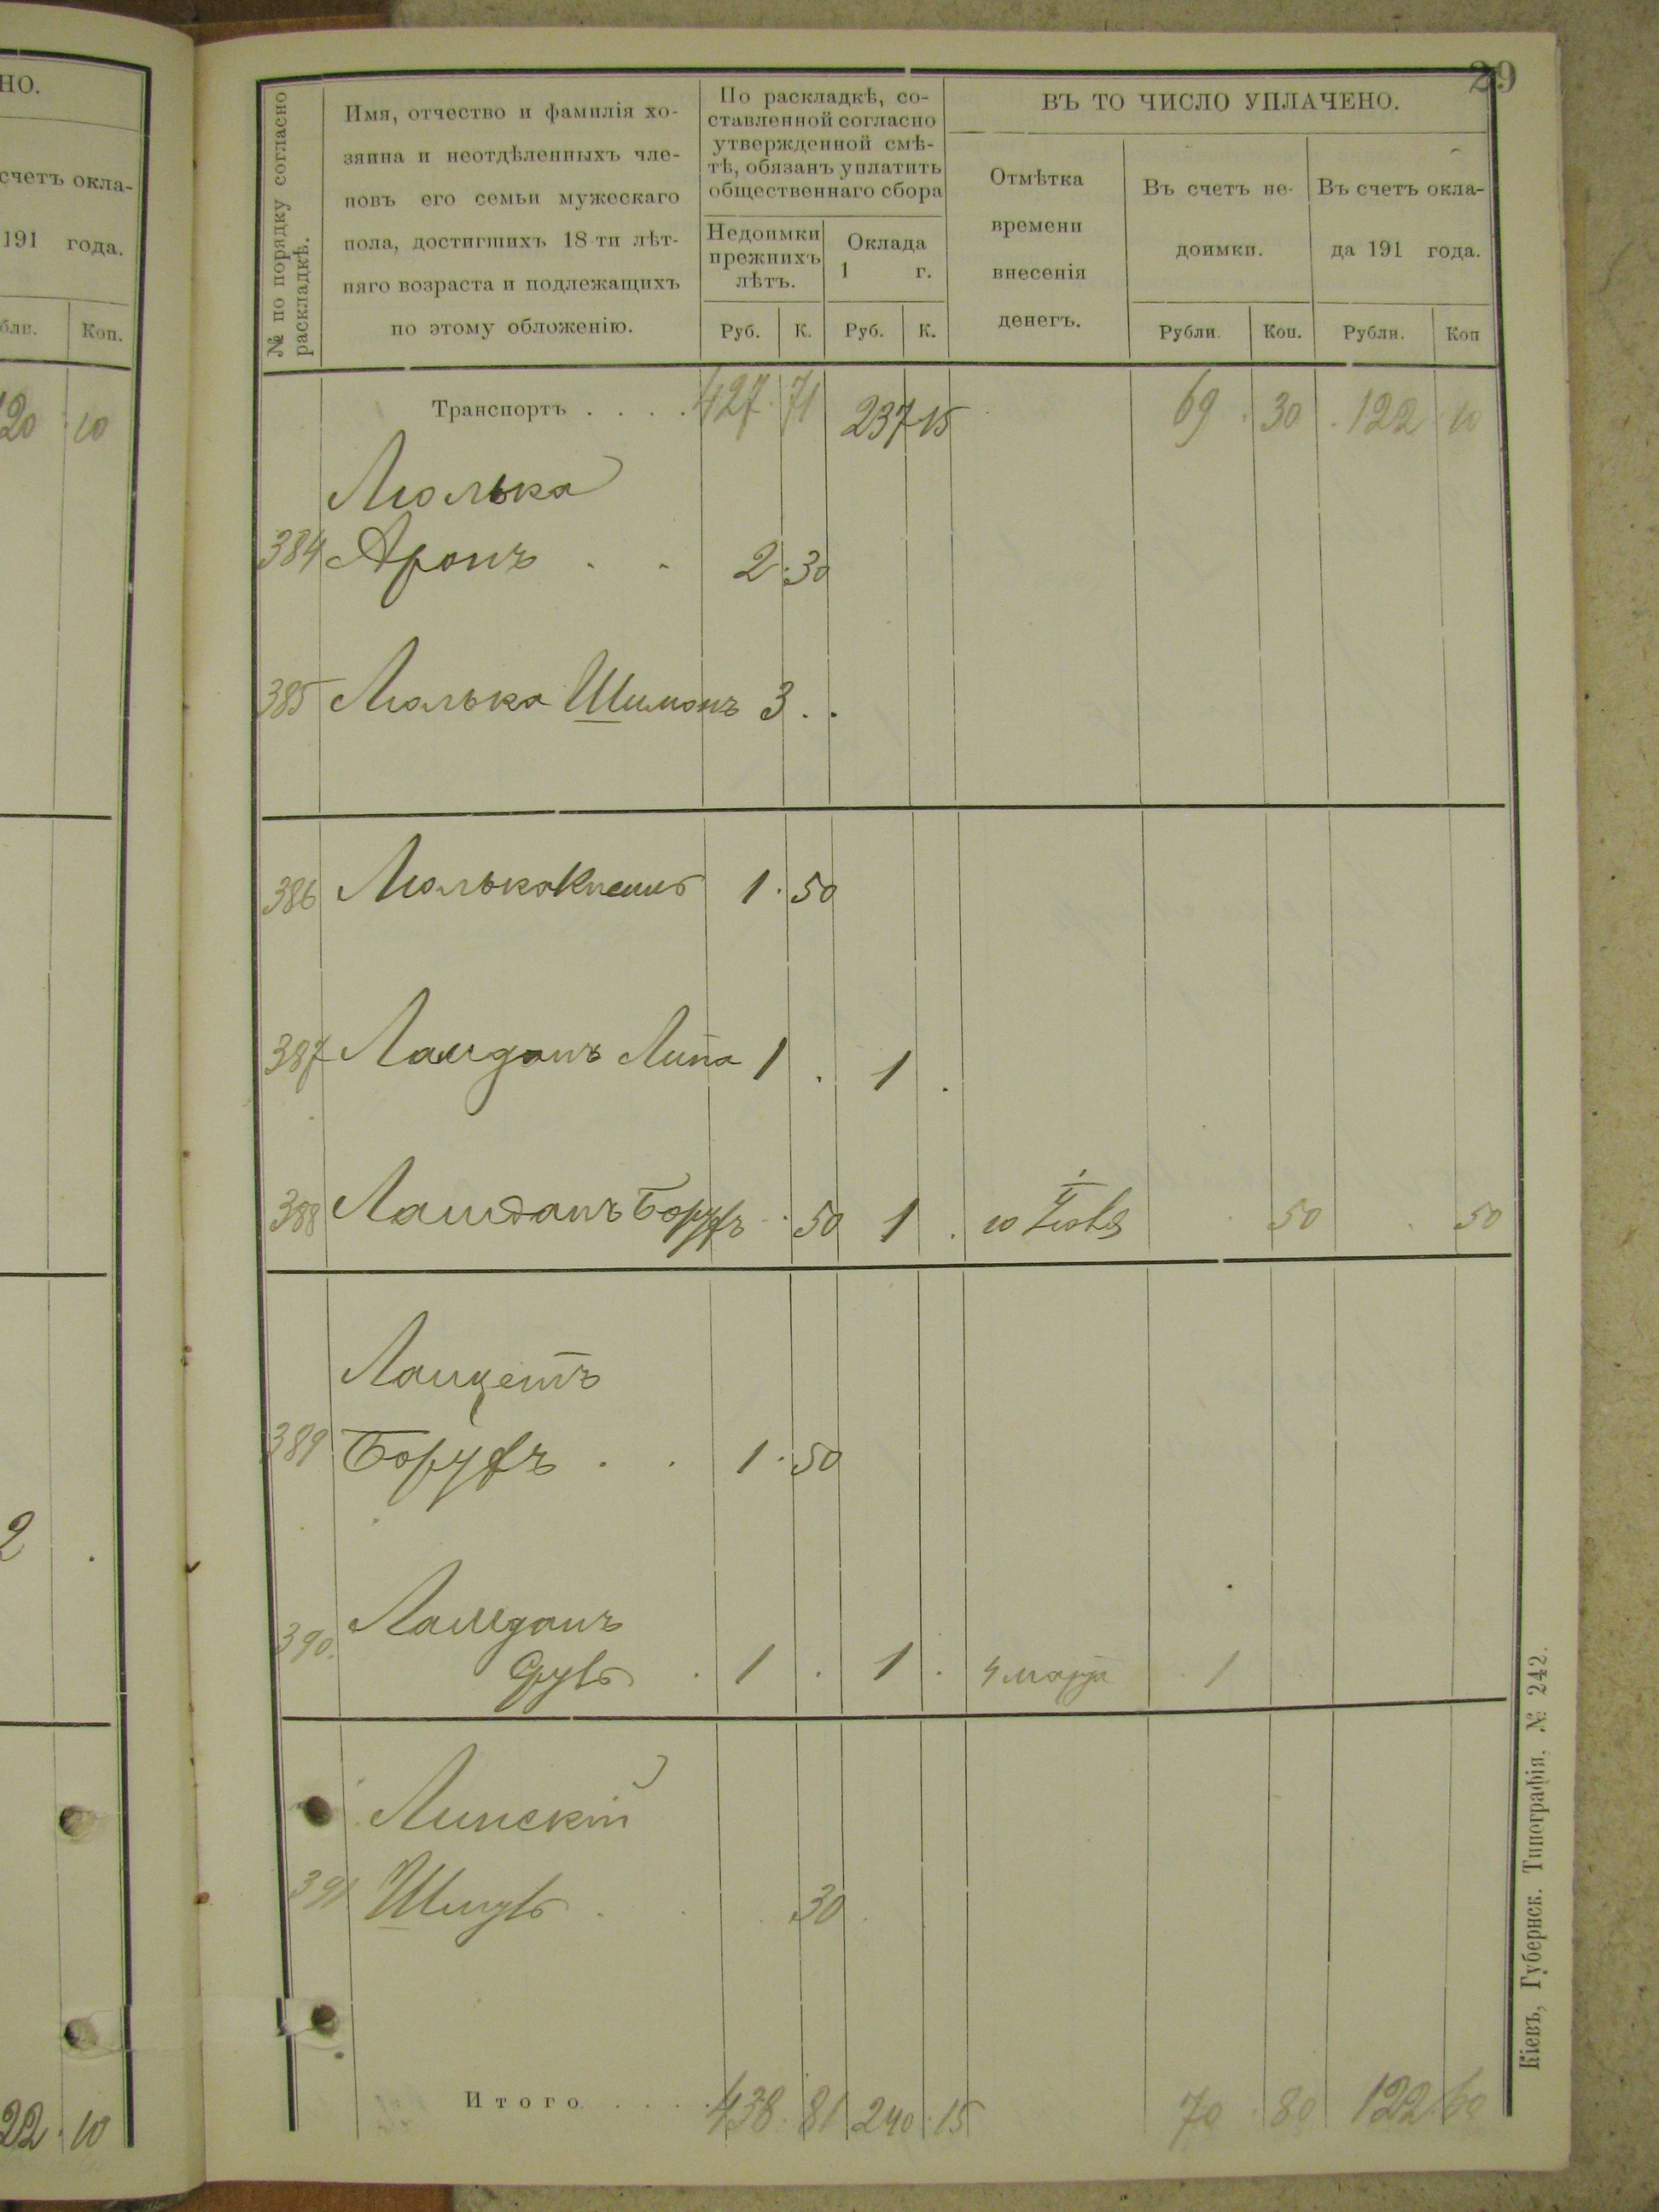 НО.
счетъ окла-
191 года.
бли. Коп.
20 10
2 .
22 10
29
№ по порядку согласно
раскладкѣ.
Имя, отчество и фамилія хо-
зяина и неотдѣленныхъ чле-
новъ его семьи мужескаго
пола, достигшихъ 18-ти лѣт-
няго возраста и подлежащихъ
по этому обложенію.
По раскладкѣ, со-
ставленной согласно
утвержденной смѣ-
тѣ, обязанъ уплатить
общественнаго сбора
Недоимки
прежнихъ
лѣтъ.
Оклада
1 г.
Руб. К. Руб. К.
ВЪ ТО ЧИСЛО УПЛАЧЕНО.
Отмѣтка
времени
внесенія
денегъ.
Въ счетъ не-
доимки.
Рубли. Коп.
Въ счетъ окла-
да 191 года.
Рубли. Коп
Транспортъ . . . . 427 71 237 15 69 30 122 10
Люлька
384 Аронъ . . 2 30
385 Люлька Шимонъ 3 . .
386 Люлька 1 50
387 Ламданъ Липа 1 . 1 .
388 Ламданъ Борухъ 50 1 . 10 50 50
Ланцетъ
389 Борухъ . . 1 50
Ламданъ
390. . 1 . 1 . 4 марта 1
Линскій
391 Шмуль . 30
Итого. . . . . 438 81 240 15 70 80 122 60
Кіевъ, Губернск. Типографія, № 242.